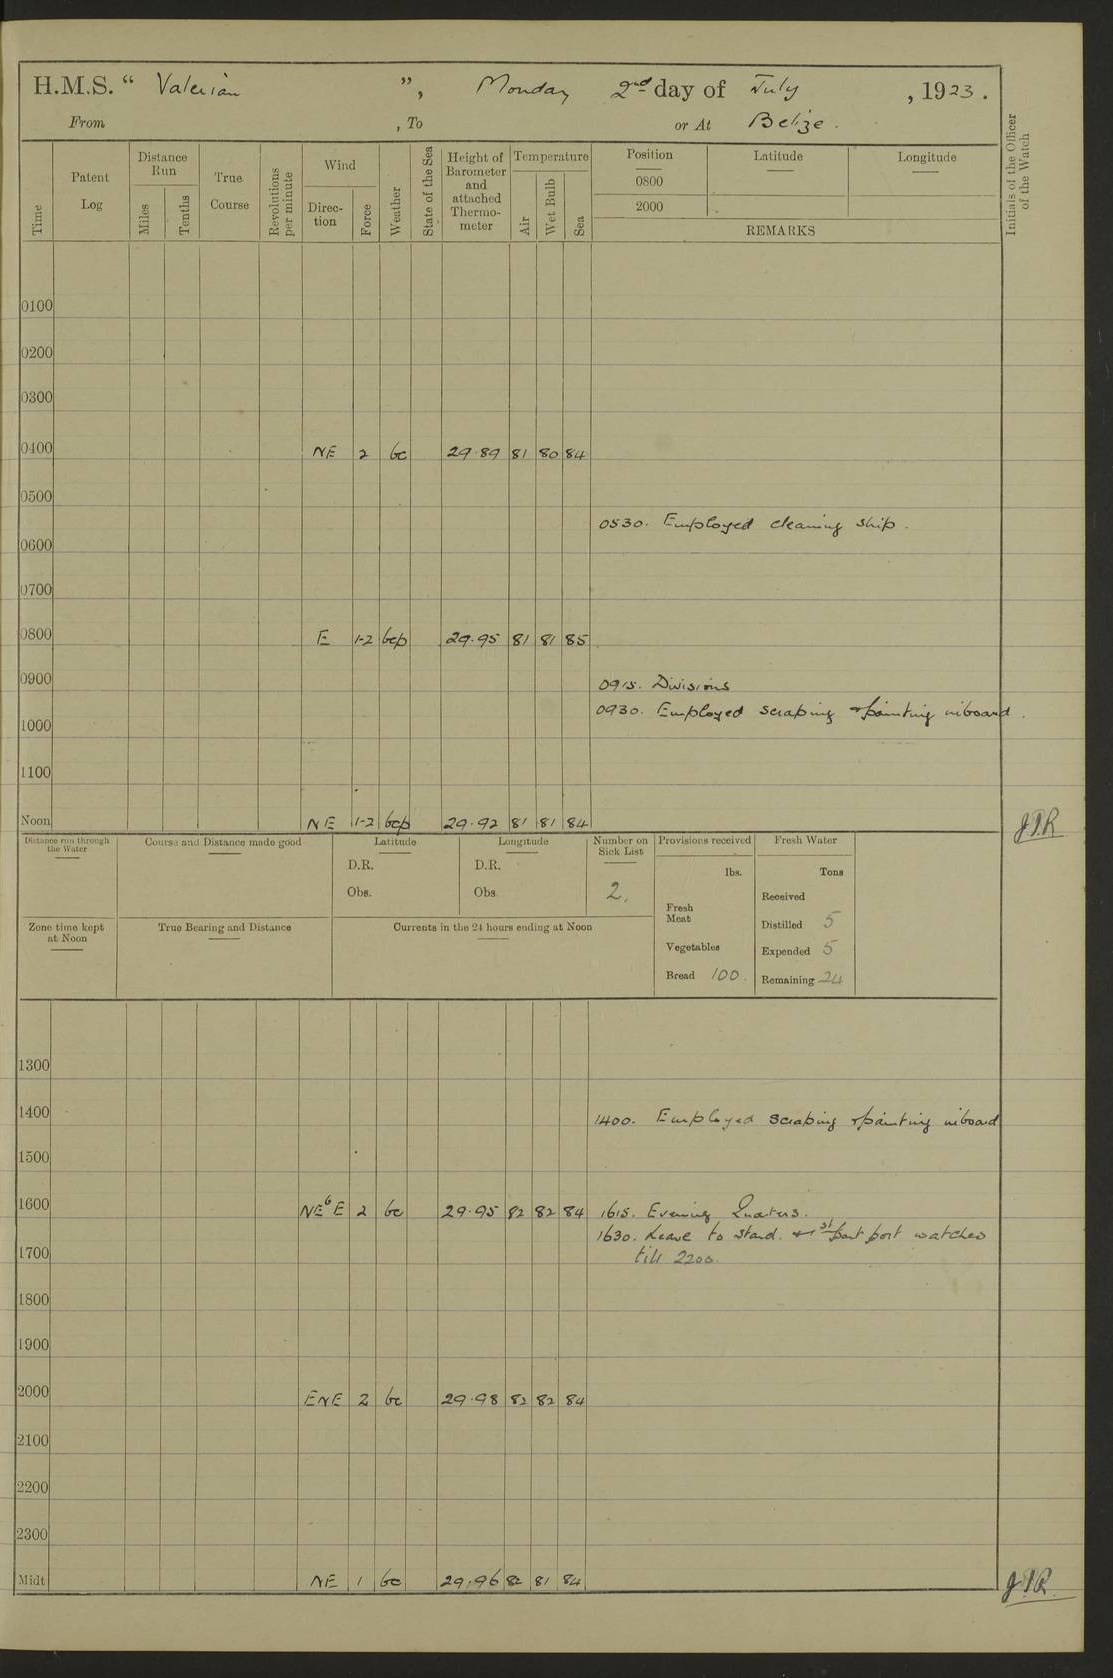 H.M.S. “ Valerian ”, Monday 2nd day of July, 1923.
From , To or At Belize.
Time
Patent Log
Distance Run
Miles
Tenths
True Course
Revolutions per minute
Wind
Direc-tion
Force
Weather
State of the Sea
Height of Barometer and attached Thermo-meter
Temperature
Air
Wet Bulb
Sea
Position
0800
2000
Latitude
Longitude
REMARKS
Initials of the Officer of the Watch
0100
0200
0300
0400 NE 2 bc 29.89 81 80 84
0500
0530. Employed cleaning ship.
0600
0700
0800 E 1-2 bcp 29.95 81 81 85
0900
0915. Divisions
0930. Employed scraping & painting inboard.
1000
1100
Noon NE 1-2 bcp 29.92 81 81 84 JPR
Distance run through the Water
Course and Distance made good
Latitude
D.R.
Obs.
Longitude
D.R.
Obs.
Number on Sick List
2.
Provisions received
lbs.
Fresh Meat
Vegetables
Bread 100.
Fresh Water
Tons
Received
Distilled 5
Expended 5
Remaining 24
Zone time kept at Noon
True Bearing and Distance
Currents in the 24 hours ending at Noon
1300
1400
1400. Employed scraping & painting inboard
1500
1600 NEbE 2 bc 29.95 82 82 84 1615. Evening Quarters.
1630. Leave to stand. & 1st part port watches
till 2200.
1700
1800
1900
2000 ENE 2 bc 29.98 82 82 84
2100
2200
2300
Midt NE 1 bc 29.96 82 81 84 JPR